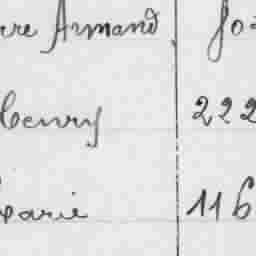 rre Armand Jo
Henry 222
Marie 116